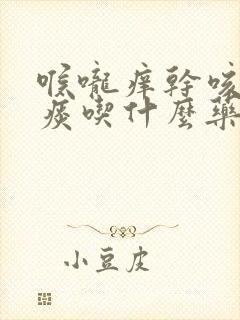 喉嚨痒幹咳
痰喫什麼藥
小豆皮